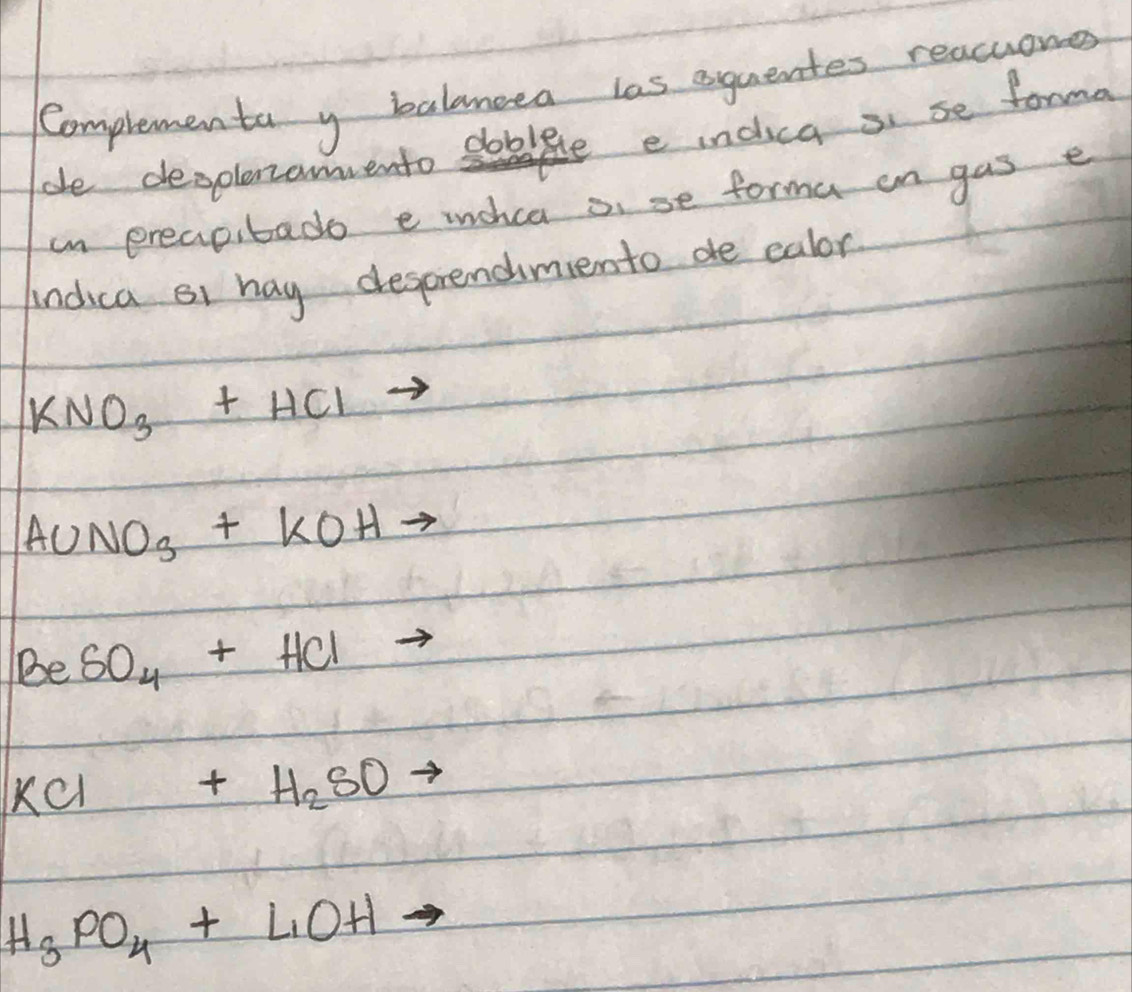 Complementa y balancea las siguientes reacciones
de desplazamiento doble e indica si se forma
un precipitado e indica si se forma un gas e
indica si hay desprendimiento de calor
KNO₃ + HCl →
AUNO₃ + KOH →
BeSO₄ + HCl →
KCl + H₂SO →
H₃PO₄ + LiOH →